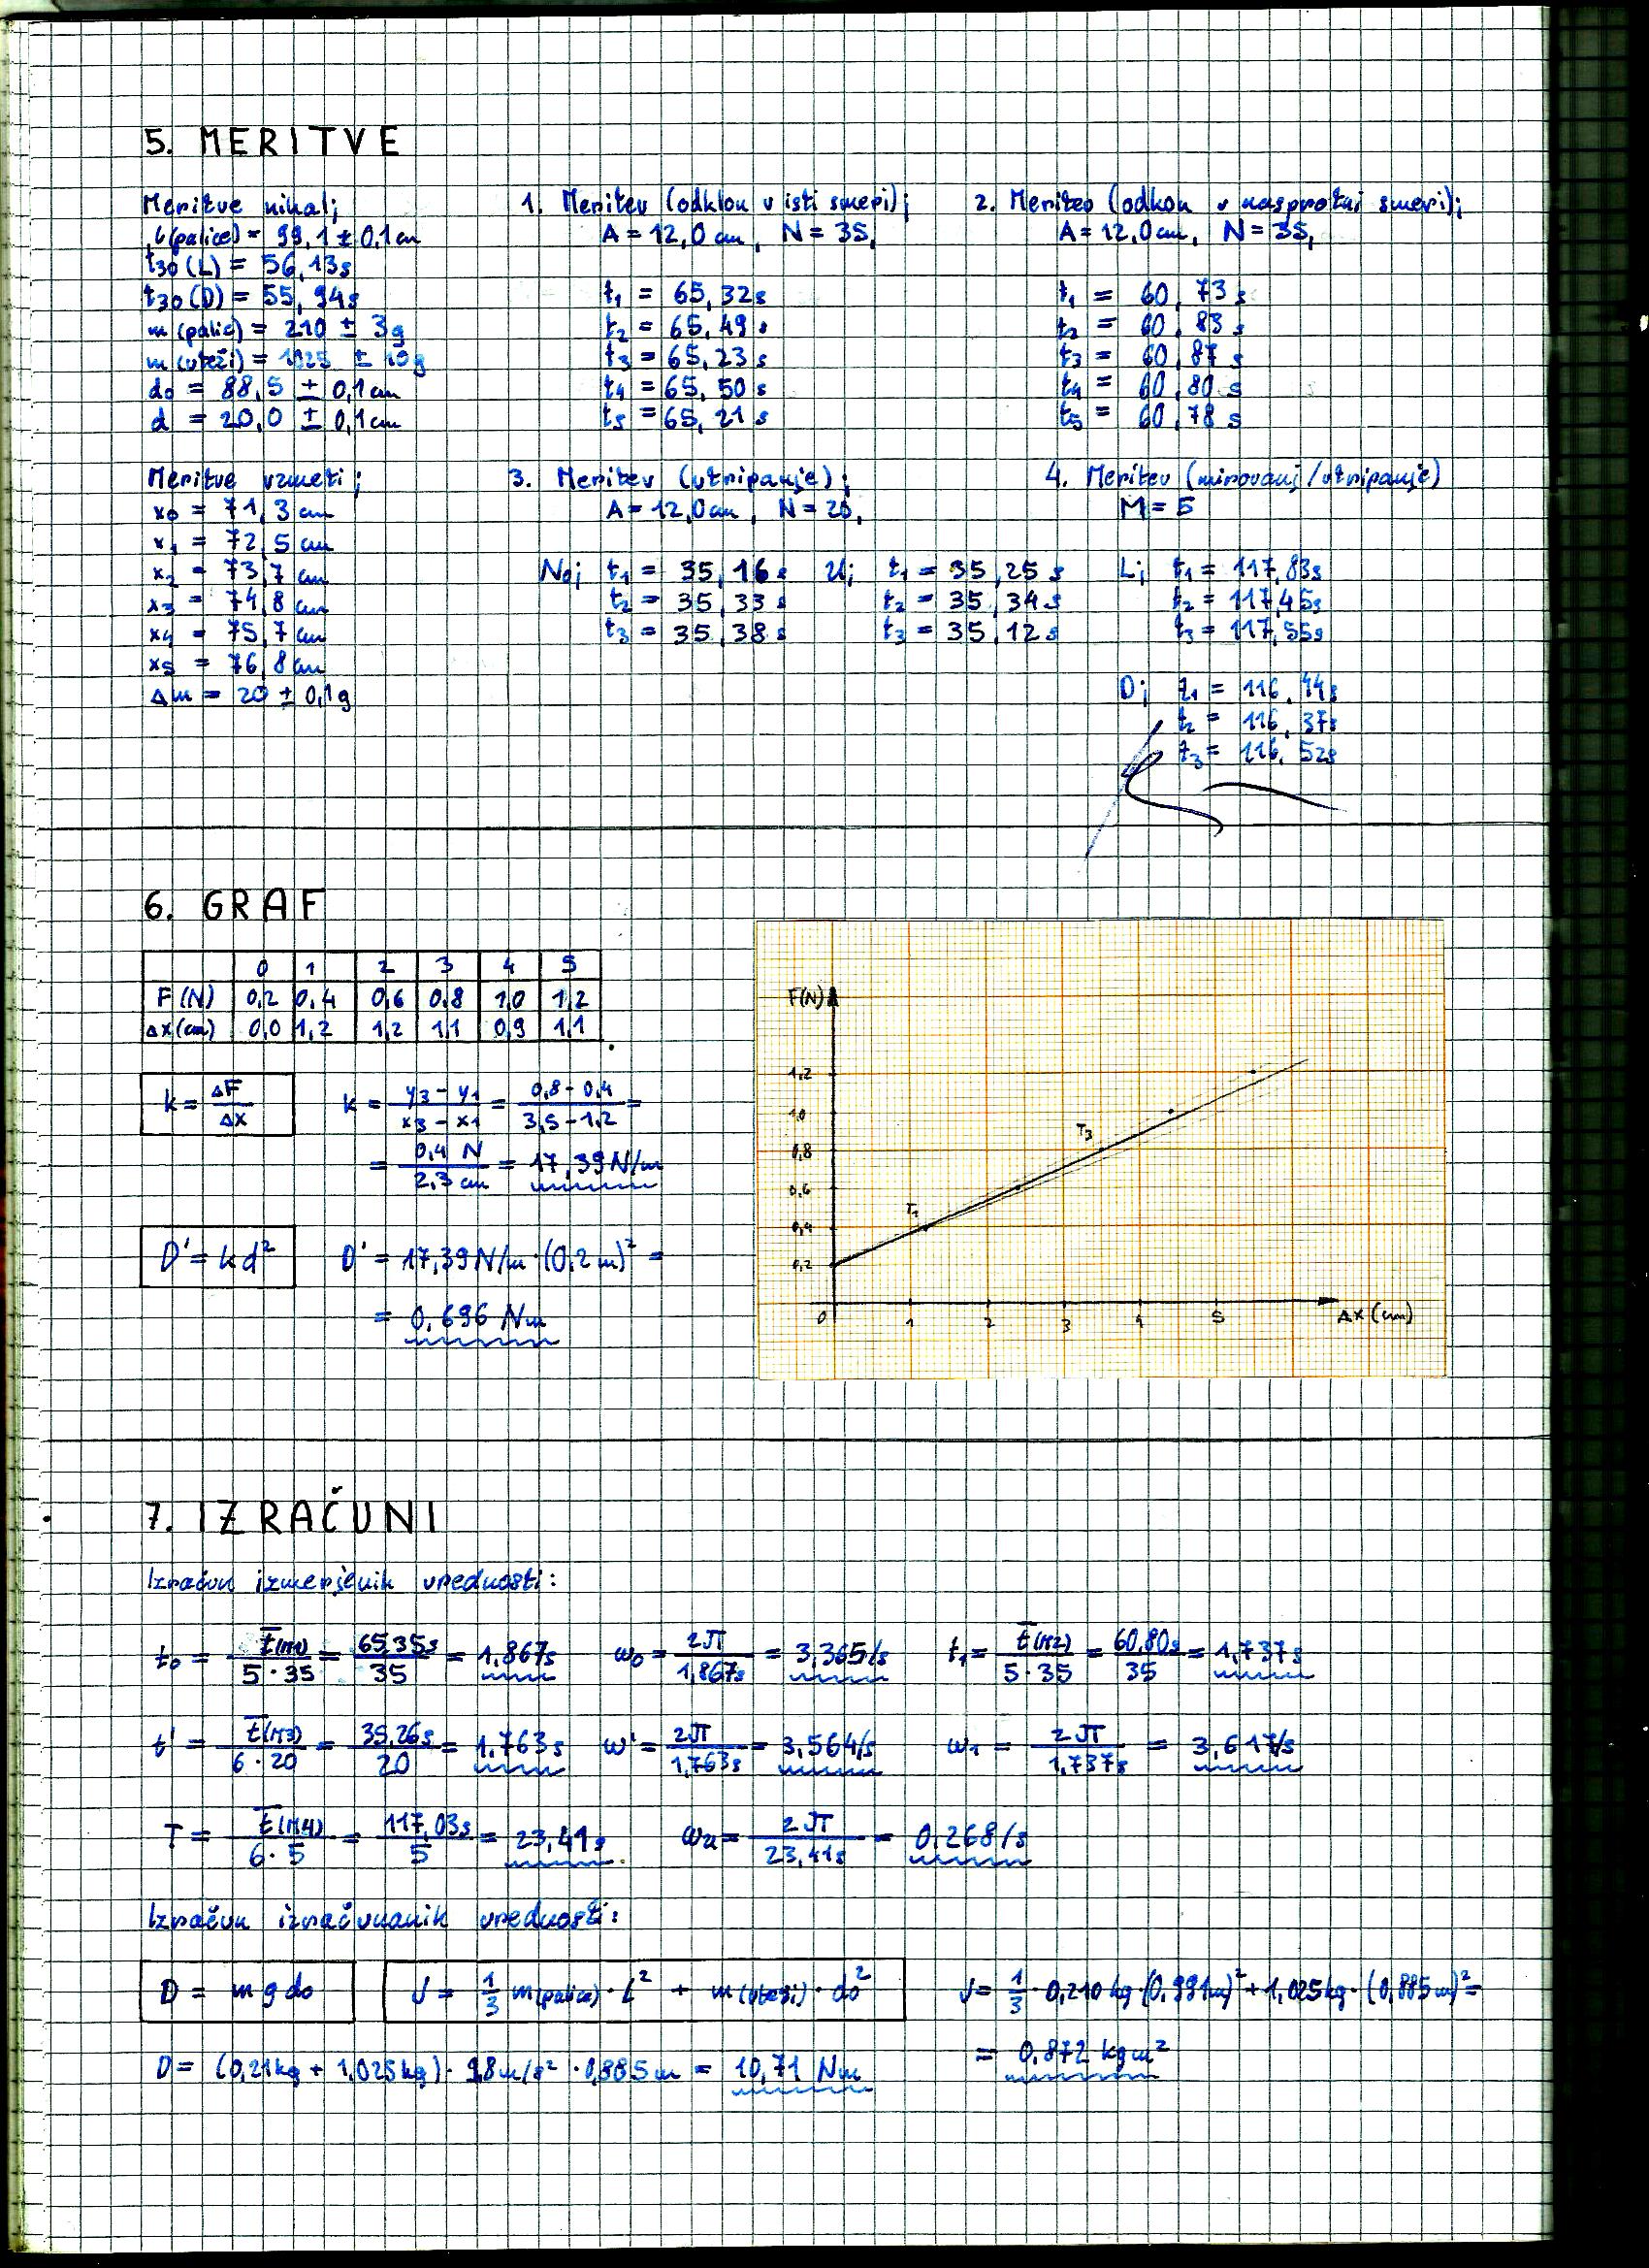 5. MERITVE
Meritve nihal;
l(palice) = 99,1 ± 0,1 cm
t30 (L) = 56,13s
t30 (D) = 55,94s
m (palic) = 210 ± 3g
m (uteži) = 1025 ± 10g
d0 = 88,5 ± 0,1 cm
d = 20,0 ± 0,1 cm
1. Meritev (odklon v isti smeri);
A = 12,0 cm, N = 35,
t1 = 65,32s
t2 = 65,49s
t3 = 65,23s
t4 = 65,50s
t5 = 65,21s
2. Meritev (odkon v nasprotni smeri);
A = 12,0 cm, N = 35,
t1 = 60,73s
t2 = 60,83s
t3 = 60,87s
t4 = 60,80s
t5 = 60,78s
Meritve vzmeti;
x0 = 71,3 cm
x1 = 72,5 cm
x2 = 73,7 cm
x3 = 74,8 cm
x4 = 75,7 cm
x5 = 76,8 cm
Δm = 20 ± 0,1g
3. Meritev (utripanje);
A = 12,0 cm, N = 20,
No; t1 = 35,16s
t2 = 35,33s
t3 = 35,38s
U; t1 = 35,25s
t2 = 35,34s
t3 = 35,12s
4. Meritev (mirovanj/utripanje)
M = 5
L; t1 = 117,83s
t2 = 117,45s
t3 = 117,55s
D; t1 = 116,44s
t2 = 116,37s
t3 = 116,52s
6. GRAF
0 1 2 3 4 5
F (N) 0,2 0,4 0,6 0,8 1,0 1,2
Δx (cm) 0,0 1,2 1,2 1,1 0,9 1,1
k = ΔF/Δx
k = (y3 - y1)/(x3 - x1) = (0,8 - 0,4)/(3,5 - 1,2) =
= 0,4 N/2,3 cm = 17,39 N/m
D' = kd²
D' = 17,39 N/m · (0,2 m)² =
= 0,696 Nm
F(N)
1,2
1,0
T3
0,8
0,6
T1
0,4
0,2
0 1 2 3 4 5 Δx (cm)
7. IZRAČUNI
Izračun izmerjenih vrednosti:
t0 = t̄(M1)/(5·35) = 65,35s/35 = 1,867s ω0 = 2π/1,867s = 3,365/s t1 = t̄(M2)/(5·35) = 60,80s/35 = 1,737s
t' = t̄(M3)/(6·20) = 35,26s/20 = 1,763s ω' = 2π/1,763s = 3,564/s ω1 = 2π/1,737s = 3,617/s
T = t̄(M4)/(6·5) = 117,03s/5 = 23,41s ωu = 2π/23,41s = 0,268/s
Izračun izračunanih vrednosti:
D = m g d0
J = 1/3 m(palice) · l² + m(uteži) · d0²
J = 1/3 · 0,210 kg · (0,991m)² + 1,025 kg · (0,885 m)² =
= 0,872 kgm²
D = (0,21kg + 1,025kg) · 9,8 m/s² · 0,885 m = 10,71 Nm